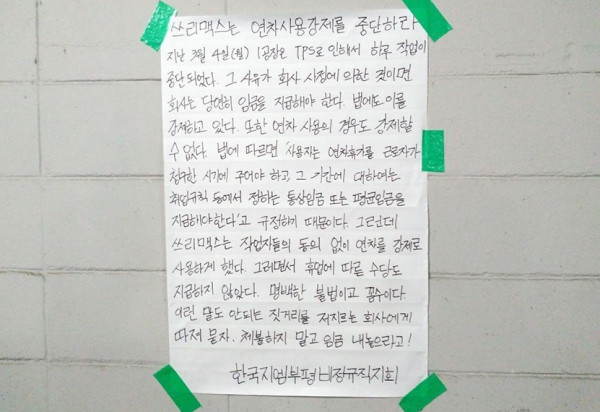 쓰리맥스는 연차사용강제를 중단하라
지난 3월 4일(월) 1공장은 TPS로 인해서 하루 작업이
중단되었다. 그 사유가 회사 사정에 의한 것이면
회사는 당연히 임금을 지급해야 한다. 법에도 이를
강제하고 있다. 또한 연차 사용의 경우도 강제할
수 없다. 법에 따르면 '사용자는 연차휴가를 근로자가
청구한 시기에 주어야 하고, 그 기간에 대하여는
취업규칙 등에서 정하는 통상임금 또는 평균임금을
지급해야한다'고 규정하기 때문이다. 그런데
쓰리맥스는 작업자들의 동의 없이 연차를 강제로
사용하게 했다. 그러면서 휴업에 따른 수당도
지급하지 않았다. 명백한 불법이고 꼼수다.
이런 말도 안되는 짓거리를 저지르는 회사에게
따져 묻자. 체불하지 말고 임금 내놓으라고!
한국지엠부평비정규직지회